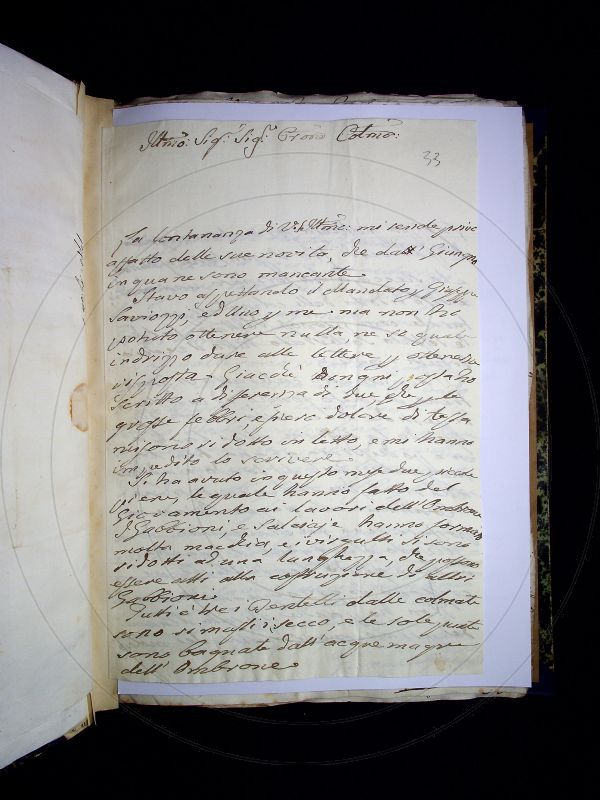 Illmo: Sig.r Sig.r Prone Colmo:
33
La lontananza di V.S. Illma: mi rende privo
affatto delle sue novità, che da Giugno
in qua ne sono mancante.
Stavo aspettando il Mandato p Giuseppe
Saviozzi, ed uno p me ma non ho
potuto ottenere nulla, ne so quale
indrizzo dare alle lettere p ottenerne
risposta
scritto a di che p le
grosse febbri, e fiero dolore di testa
mi sono ridotto in letto, e mi hanno
impedito lo scrivere.
Si ha avuto in questo mese due piccole
piene, le quali hanno fatto del
Giovamento ai lavori dell'Ombrone
I Gabbioni, e Salciaje hanno formato
molta macchia, e i virgulti si sono
ridotti ad una lunghezza, che possono
essere atti alla costruzione di altri
Gabbioni.
Tutti e tre i dalle colmate
sono rimasti secco, e le sole
sono bagnate dall'acque magre
dell'Ombrone.